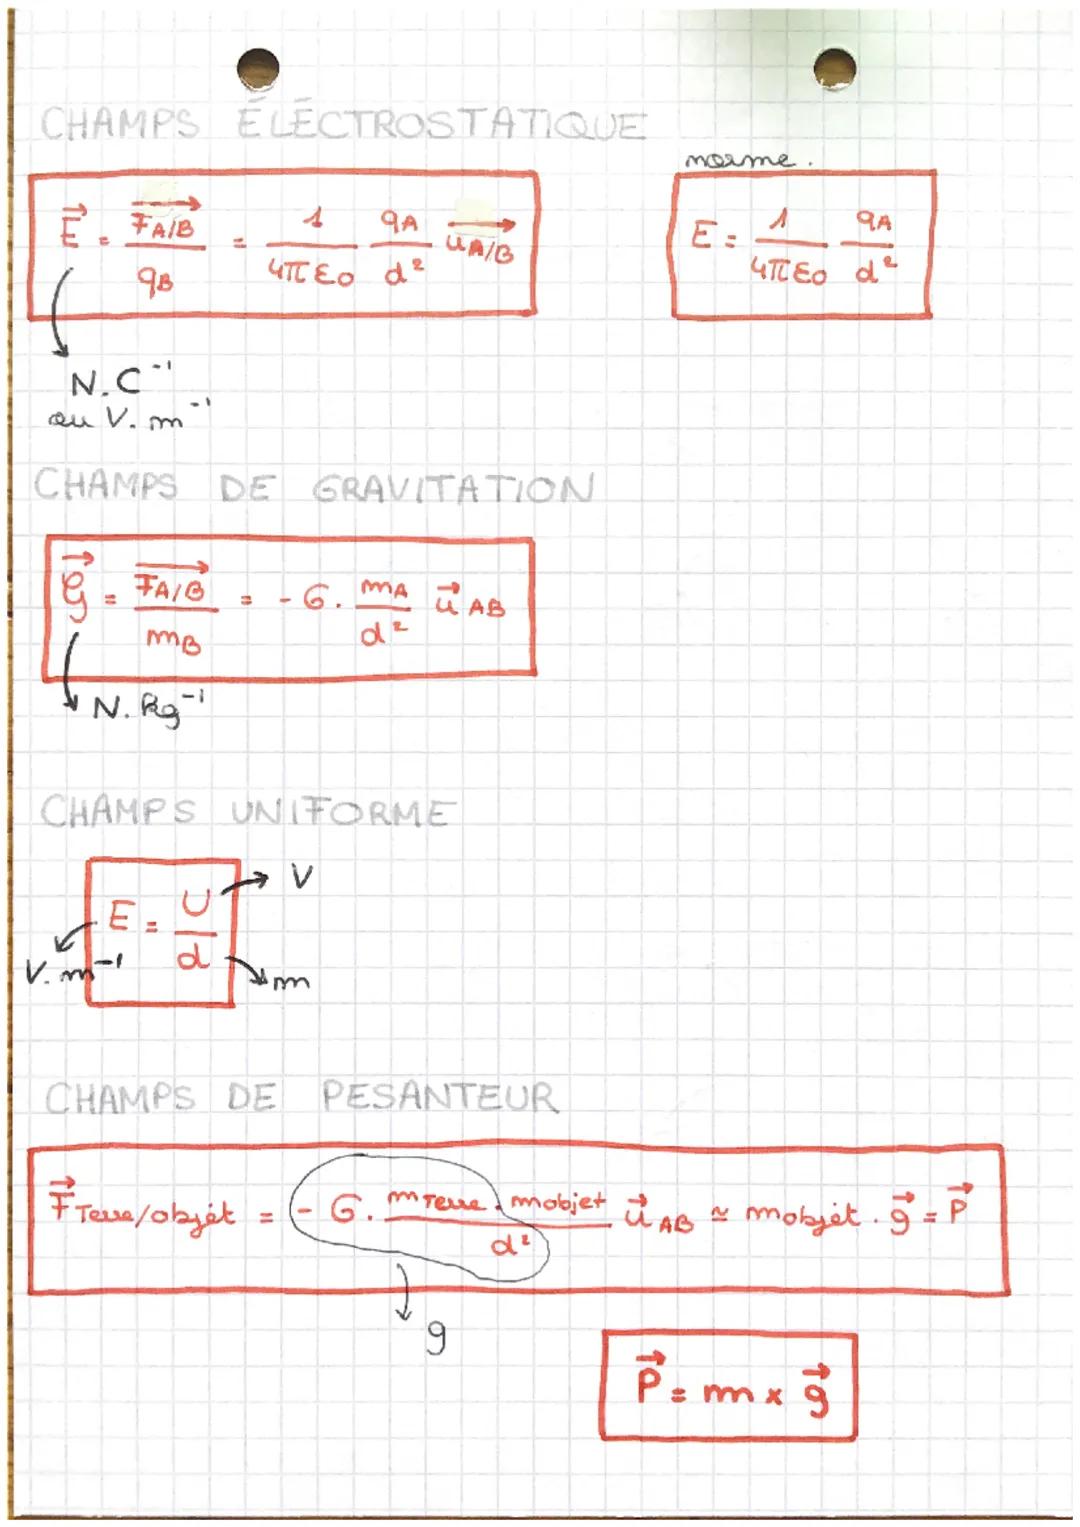 CHAMPS ÉLÉCTROSTATIQUE
norme.
$\vec{E} = \frac{\overrightarrow{F_{A/B}}}{q_B} = \frac{1}{4\pi\varepsilon_0} \frac{q_A}{d^2} \overrightarrow{u_{A/B}}$
$E = \frac{1}{4\pi\varepsilon_0} \frac{q_A}{d^2}$
N.C⁻¹
ou V.m⁻¹
CHAMPS DE GRAVITATION
$\vec{\mathcal{G}} = \frac{\overrightarrow{F_{A/B}}}{m_B} = -G. \frac{m_A}{d^2} \vec{u}_{AB}$
N.kg⁻¹
CHAMPS UNIFORME
V
$E = \frac{U}{d}$
V.m⁻¹
m
CHAMPS DE PESANTEUR
$\vec{F}_{Terre/objét} = -G. \frac{m_{Terre}.m_{objet}}{d^2} \vec{u}_{AB} \simeq m_{objét}.\vec{g} = \vec{P}$
g
$\vec{P} = m \times \vec{g}$